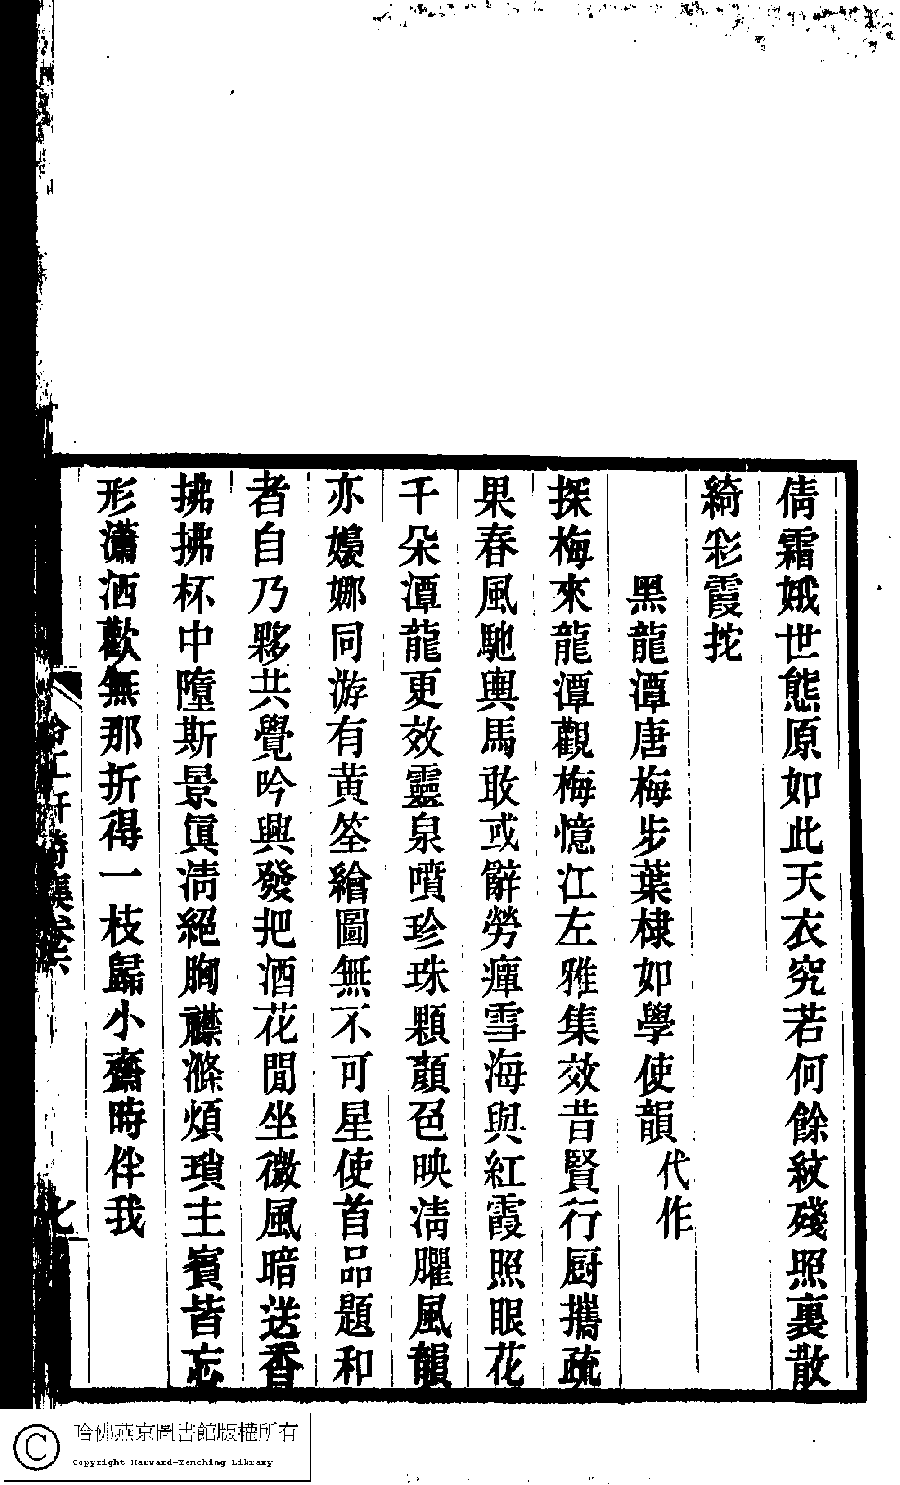 倩霜娥世態原如此天衣究若何餘紋殘照裏散
綺彩霞拕
黑龍潭唐梅步葉棣如學使韻代作
探梅來龍潭觀梅憶江左雅集效昔賢行厨攜疏
果春風馳輿馬敢或辭勞癉雪海與紅霞照眼花
千朵潭龍更效靈泉噴珍珠顆顏色映清臞風韻
亦嬝娜同游有黄筌繪圖無不可星使首品題和
者自乃夥共覺吟興發把酒花閒坐微風暗送香
拂拂杯中墮斯景眞清絕胸襟滌煩瑣主賓皆忘
形瀟洒歡無那折得一枝歸小齋時伴我
集卷六
七
哈佛燕京圖書館版權所有
Copyright Harvard-Yenching Library